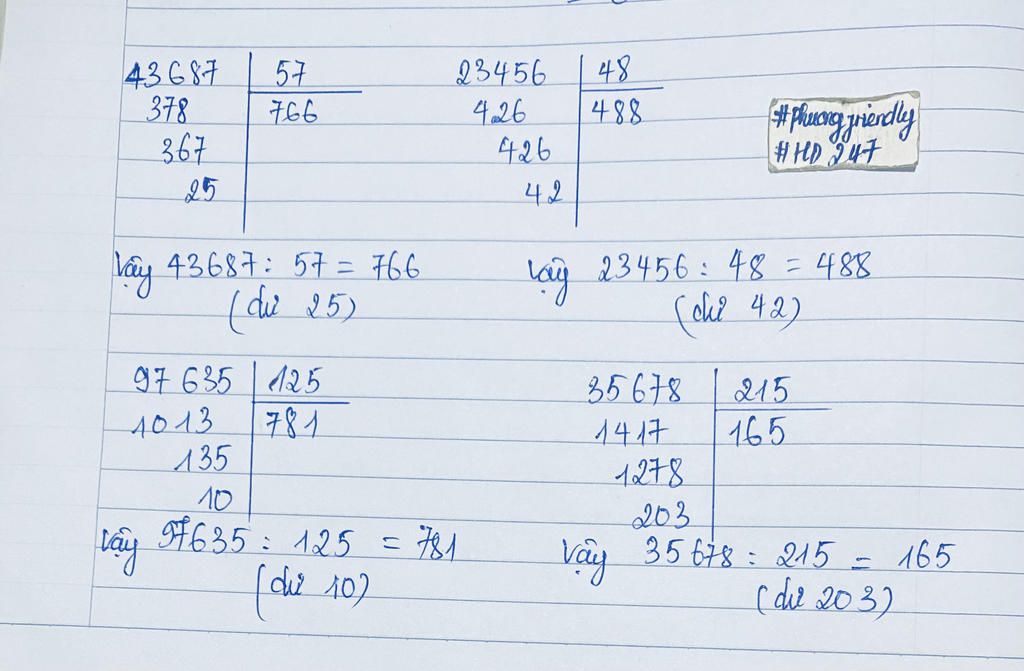 43687 57
378 766
367
25
23456 48
426 488
426
42
#phuongfriendly
#HD 247
Vậy 43687 : 57 = 766
(dư 25)
Vậy 23456 : 48 = 488
(dư 42)
97635 125
1013 781
135
10
35678 215
1417 165
1278
203
Vậy 97635 : 125 = 781
(dư 10)
Vậy 35678 : 215 = 165
(dư 203)